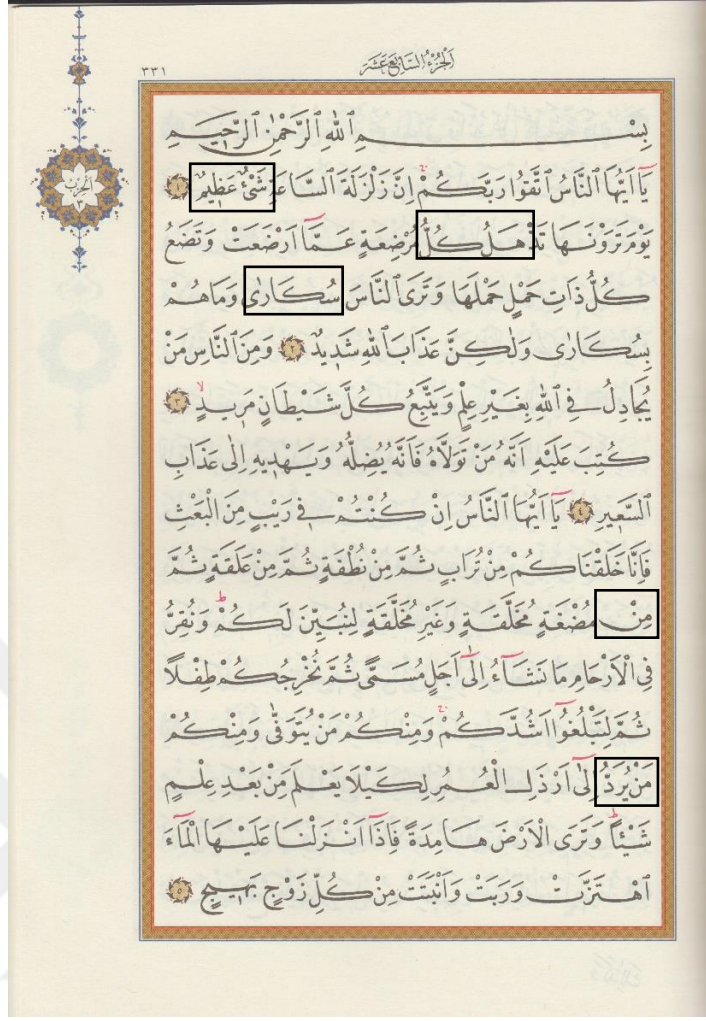 اَلْجُزْءُ السَّابِعَ عَشَرَ
٣٣١
اَلْحِزْبُ
٣
بِسْمِ ٱللهِ ٱلرَّحْمٰنِ ٱلرَّح۪يمِ
يَٓا اَيُّهَا ٱلنَّاسُ ٱتَّقُوا رَبَّكُمْۚ اِنَّ زَلْزَلَةَ ٱلسَّاعَةِ شَيْءٌ عَظ۪يمٌ ١
يَوْمَ تَرَوْنَهَا تَذْهَلُ كُلُّ مُرْضِعَةٍ عَمَّٓا اَرْضَعَتْ وَتَضَعُ
كُلُّ ذَاتِ حَمْلٍ حَمْلَهَا وَتَرَى ٱلنَّاسَ سُكَارٰى وَمَا هُمْ
بِسُكَارٰى وَلٰكِنَّ عَذَابَ ٱللهِ شَد۪يدٌ ٢ وَمِنَ ٱلنَّاسِ مَنْ
يُجَادِلُ فِي ٱللهِ بِغَيْرِ عِلْمٍ وَيَتَّبِعُ كُلَّ شَيْطَانٍ مَر۪يدٍۙ ٣
كُتِبَ عَلَيْهِ اَنَّهُ مَنْ تَوَلَّاهُ فَاَنَّهُ يُضِلُّهُ وَيَهْد۪يهِ اِلٰى عَذَابِ
ٱلسَّع۪يرِ ٤ يَٓا اَيُّهَا ٱلنَّاسُ اِنْ كُنْتُمْ ف۪ي رَيْبٍ مِنَ الْبَعْثِ
فَاِنَّا خَلَقْنَاكُمْ مِنْ تُرَابٍ ثُمَّ مِنْ نُطْفَةٍ ثُمَّ مِنْ عَلَقَةٍ ثُمَّ
مِنْ مُضْغَةٍ مُخَلَّقَةٍ وَغَيْرِ مُخَلَّقَةٍ لِنُبَيِّنَ لَكُمْۜ وَنُقِرُّ
فِي الْاَرْحَامِ مَا نَشَٓاءُ اِلٰٓى اَجَلٍ مُسَمًّى ثُمَّ نُخْرِجُكُمْ طِفْلًا
ثُمَّ لِتَبْلُغُٓوا اَشُدَّكُمْۚ وَمِنْكُمْ مَنْ يُتَوَفّٰى وَمِنْكُمْ
مَنْ يُرَدُّ اِلٰٓى اَرْذَلِ الْعُمُرِ لِكَيْلَا يَعْلَمَ مِنْ بَعْدِ عِلْمٍ
شَيْـًٔاۜ وَتَرَى الْاَرْضَ هَامِدَةً فَاِذَٓا اَنْزَلْنَا عَلَيْهَا الْمَٓاءَ
ٱهْتَزَّتْ وَرَبَتْ وَاَنْبَتَتْ مِنْ كُلِّ زَوْجٍ بَه۪يجٍ ٥